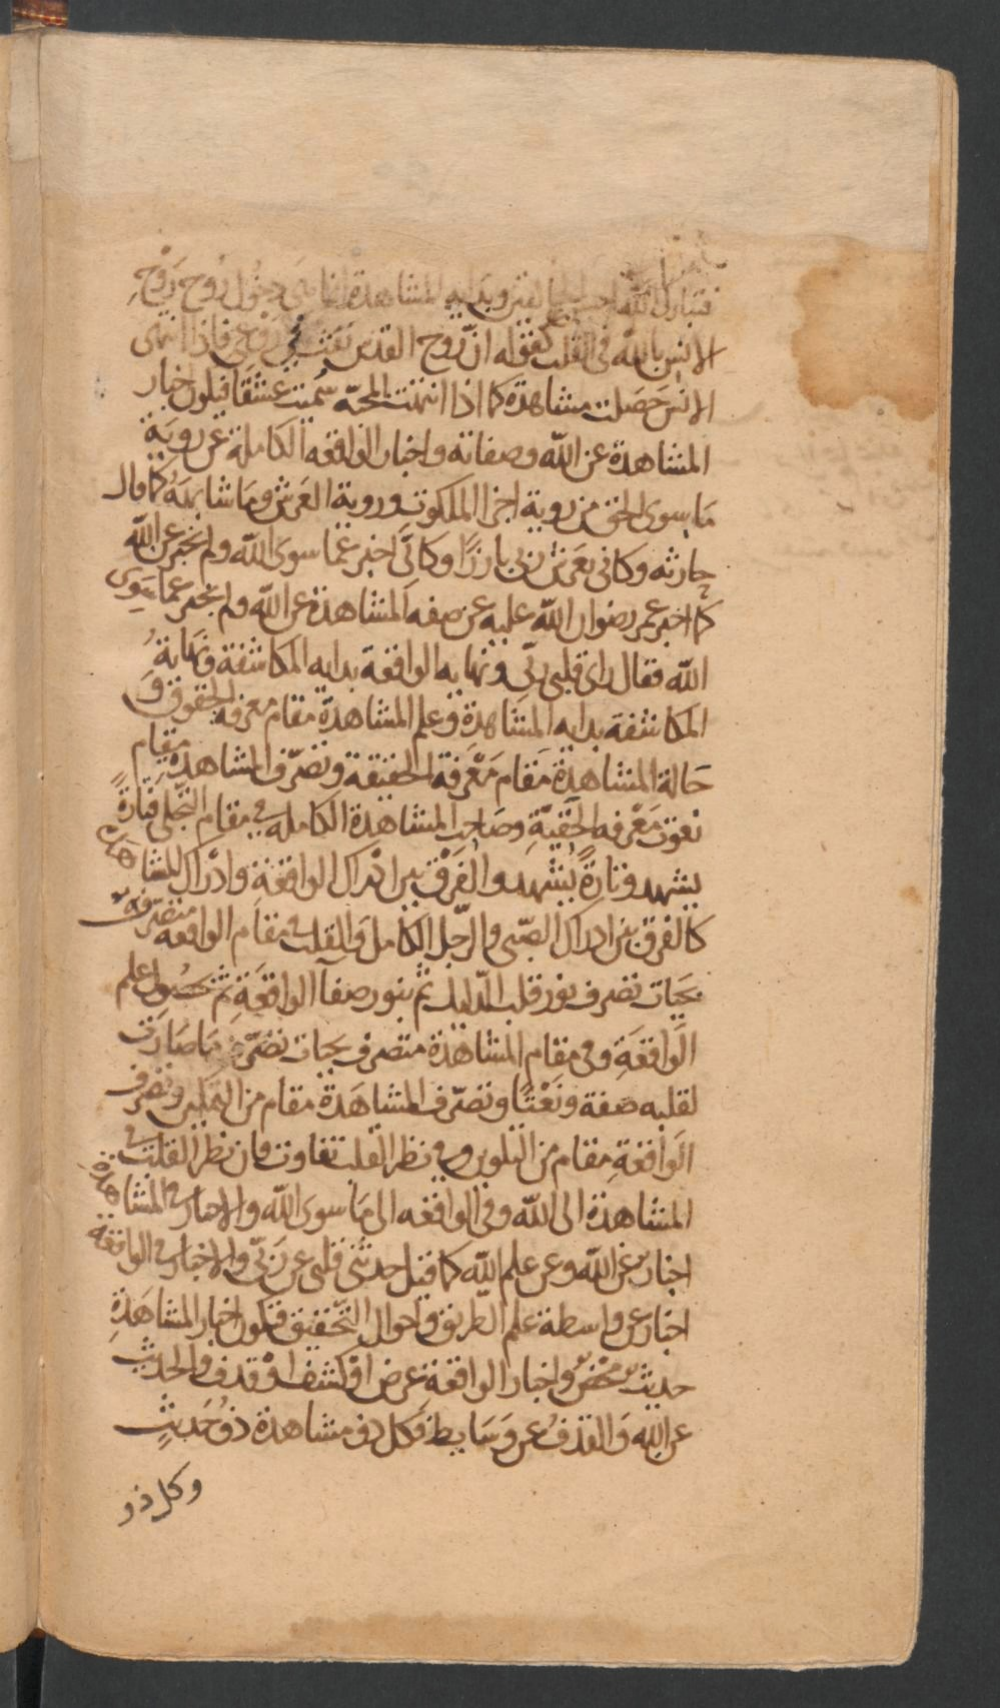 فتبارك الله احسن الخالقين وبدايه المشاهدة دخول روح روح
الانس بالله في القلب كقوله ان روح القدس نفث في روعي فاذا انتهى
الانس حَصَلت مشاهدة كما اذا انتهت المحبّه سُميت عشقًا فيكون اخبار
المشاهدة عن الله وصفاته واخبار الواقعه الكاملة عن روية
مَا سوى الحق من روية اجزا الملكوت وروية العَرش ومَا شابهَهُ كما قال
حارثه وكاني بعَرش ربي بارزًا وكاني اخبر عما سوى الله ولم يخبر عن الله
كما اخبر عمر رضوان الله عليه عن صفه المشاهدة عن الله ولم يخبر عما سَوى
الله فقال راى قلبي ربّي ونهايه الواقعة بدايه المكاشفة ونهَايةُ
المكاشفة بدايه المشاهدة وعلم المشاهدة مقام معرفه الحقوق وَ
حَالة المشاهدة مَقام مَعْرفة الحقيقة وتصرّف المشاهدة مقام
نعوت مَعْرفه الحَقيّة وصَاحب المشاهدة الكامله في مقام التجلى فتارةً
يشهد وتارةً يُشْهد والفَرْق بين ادْراك الواقعة وادْراك المشاهدة
كالفرق بين ادراك الصّبى والرّجل الكامل والقلب في مقام الواقعه متصرفه
بحَيات تصرف نور قلب الدّليل ثم بنور صفا الواقعَةِ ثم علم
الوَاقعَةِ وفى مقام المشاهدة متصرف بحيات تصرّف مَا صَارت
لقلبه صفة ونَعْتًا وتصرّف المشاهَدة مقام من التمكين وتصرف
الوَاقعَةِ مقام من التلوين وفى نظر القلب تفاوت فان نظر القلب في
المشاهدة الى الله وفى الواقعه الى مَا سوى الله والاخبار في المشاهدة
اخبار عن الله وعن علم الله كما قيل حدثنى قلبى عن رَبّى والاخبار في الواقعة
اخبار عن واسطة علم الطريق واحوال التحْقيق فتكون اخبار المشاهَدةِ
حديث محْض واخبار الواقعة عرض او كشف اوْ قدف والحديث
عن الله وَالقذفُ عن وَسَايط فكل ذو مشاهدة ذوُ حَديثٍ
وكل ذو